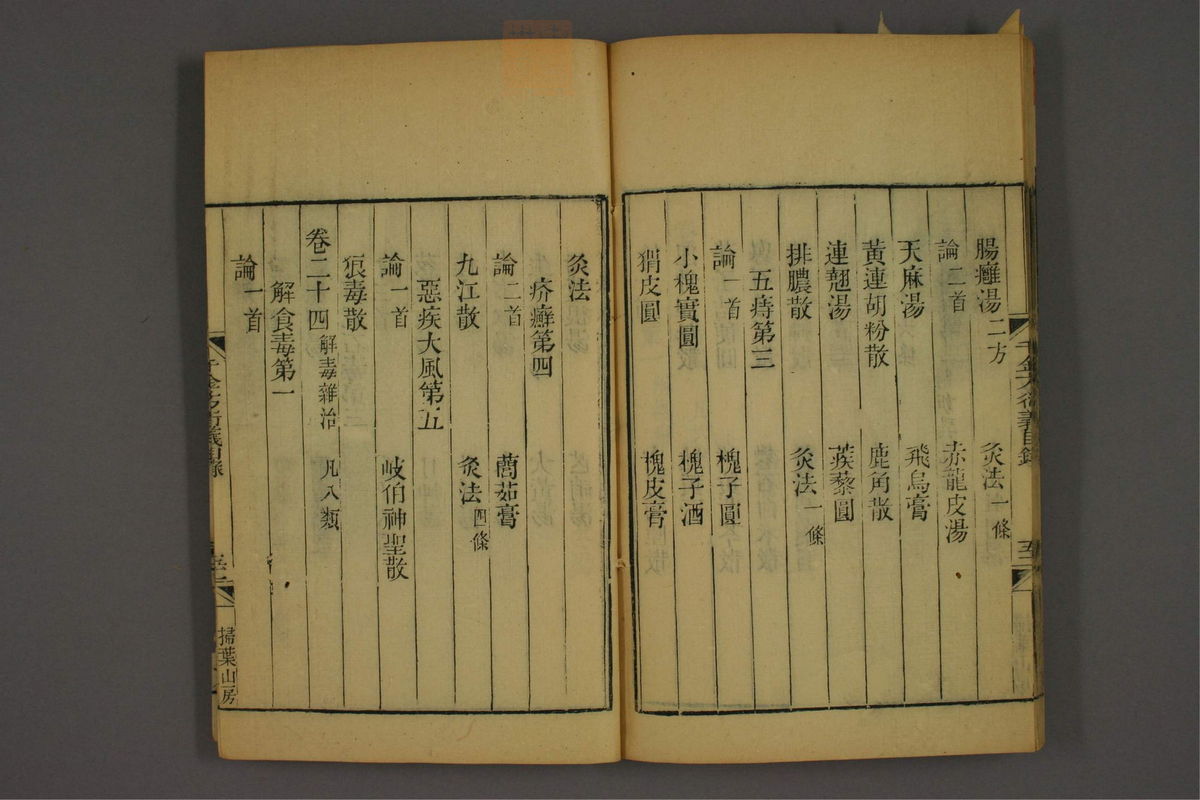 腸癰湯二方 灸法一條
論二首 赤龍皮湯
天麻湯 飛烏膏
黃連胡粉散 鹿角散
連翹湯 蒺藜圓
排膿散 灸法一條
五痔第三
論一首 槐子圓
小槐實圓 槐子酒
猬皮圓 槐皮膏
千金方衍義目錄
灸法
疥癬第四
論二首 藺茹膏
九江散 灸法四條
惡疾大風第五
論一首 岐伯神聖散
狼毒散
卷二十四解毒雜治 凡八類
解食毒第一
論一首
千金方衍義目錄
掃葉山房